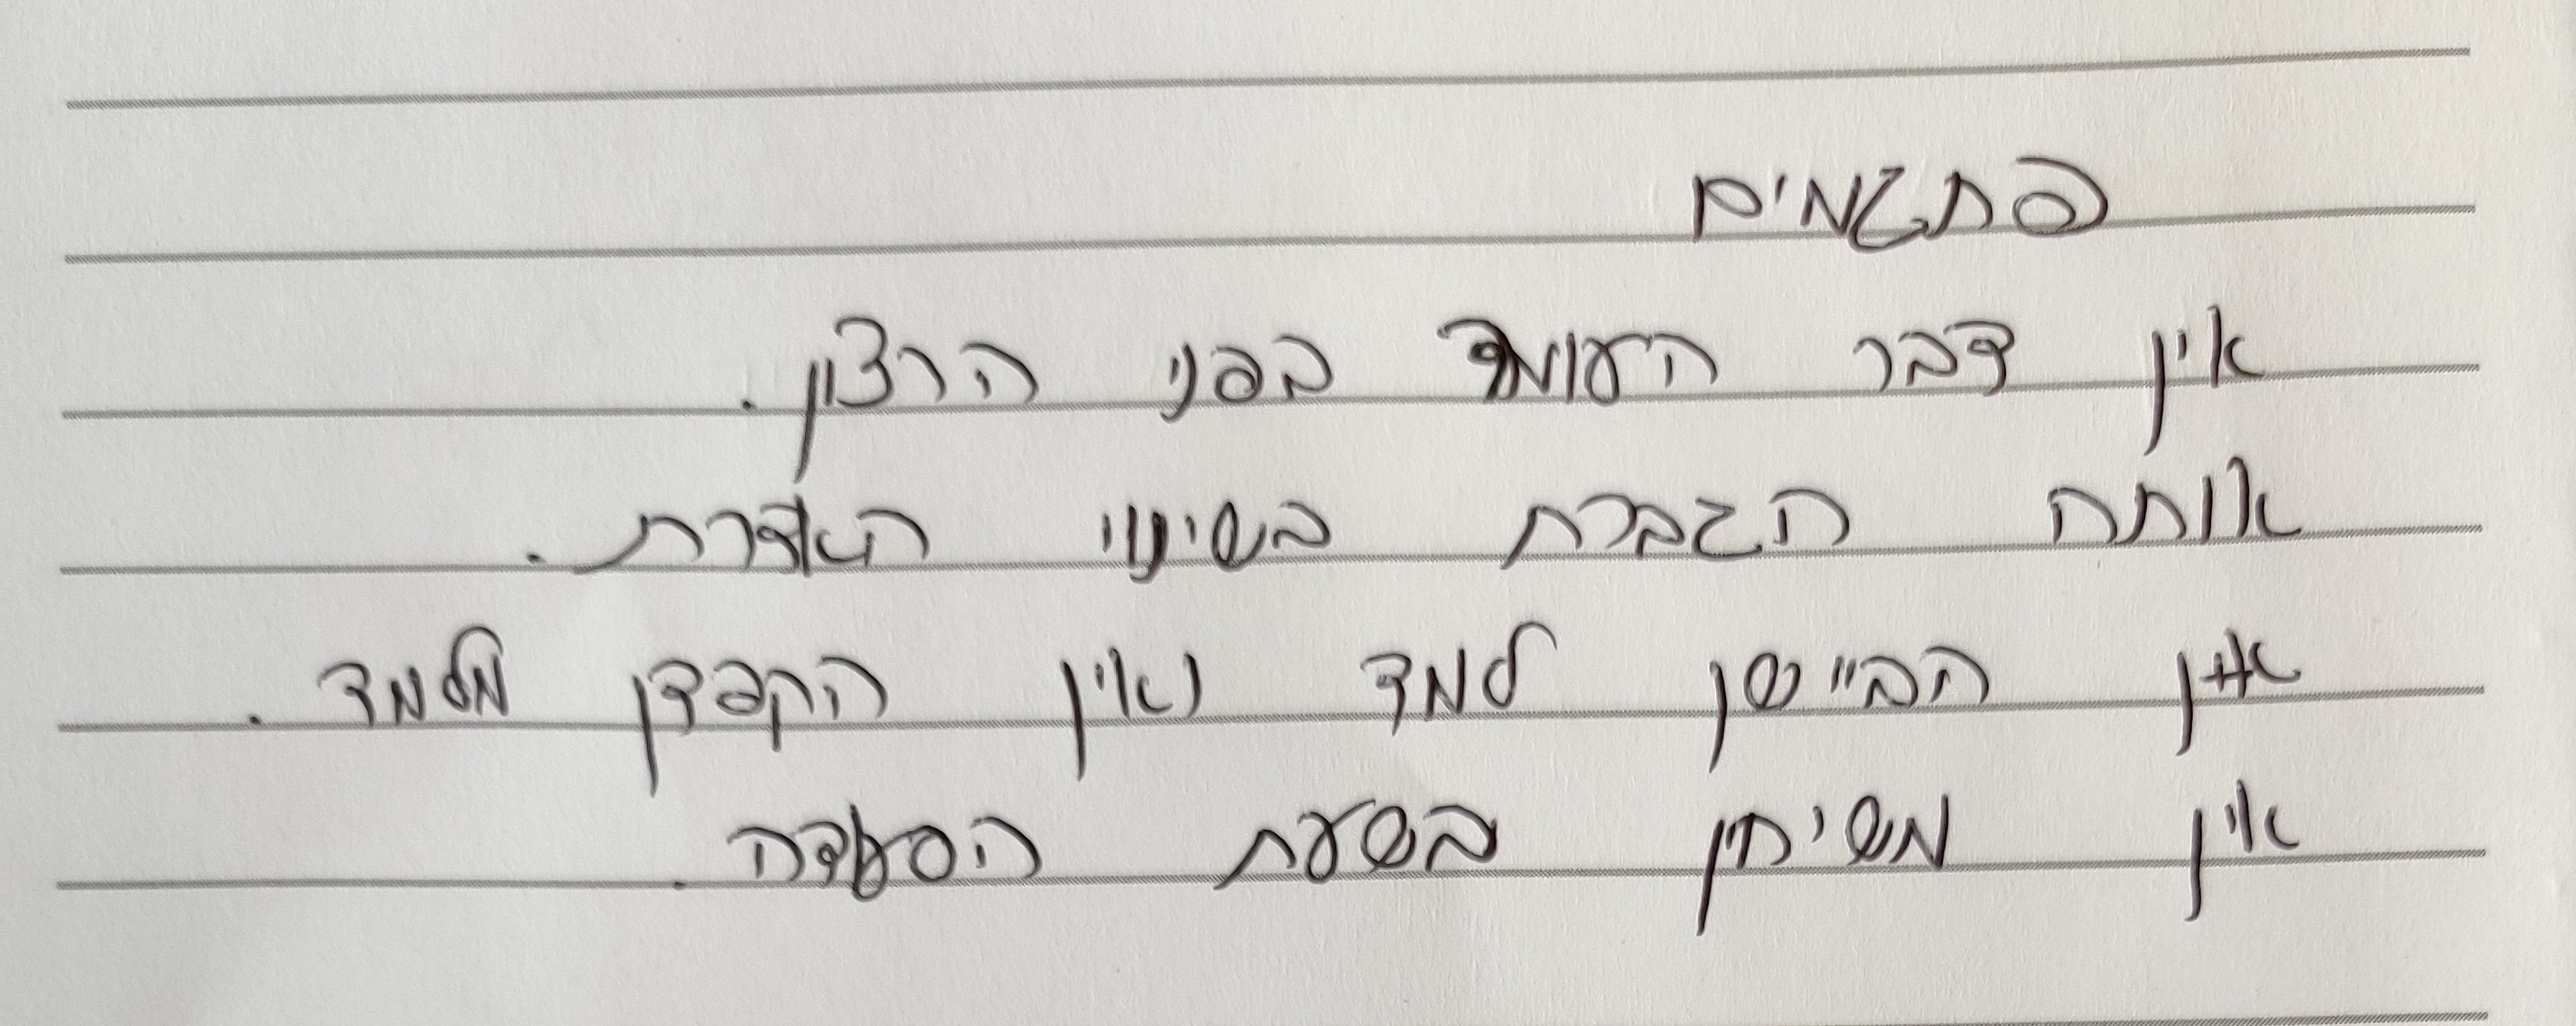 פתגמים
אין דבר העומד בפני הרצון.
אותה הגברת בשינוי האדרת.
אין הביישן למד ואין הקפדן מלמד.
אין משיחין בשעת הסעדה.